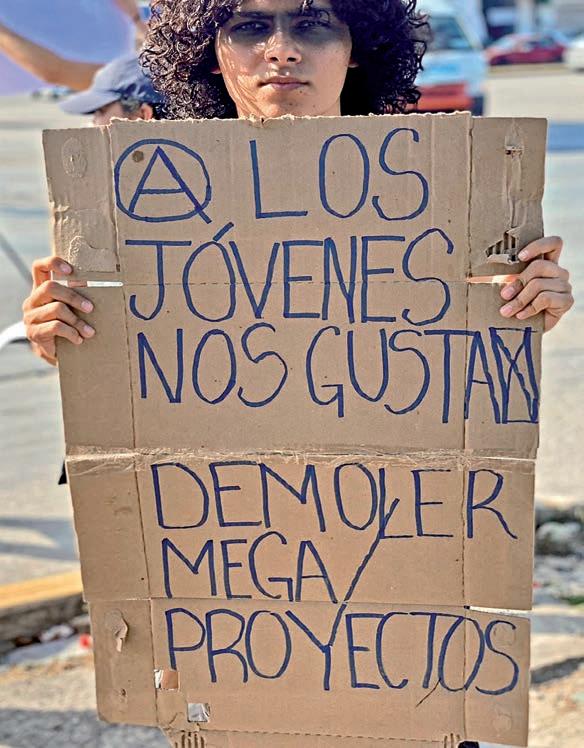 Ⓐ LOS
JÓVENES
NOS GUSTA
DEMOLER
MEGA/
PROYECTOS